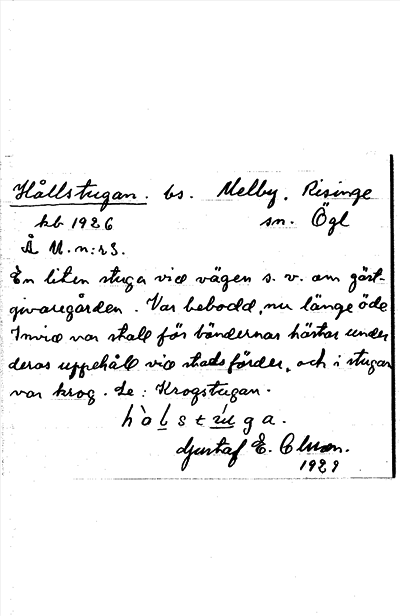 Hållstugan. bs. Melby. Risinge
kb 1926 sn. Ögl
Å U. n:r 3.
En liten stuga vid vägen s. v. om gäst-
givaregården. Var bebodd, nu länge öde
Invid var stall för böndernas hästar under
deras uppehåll vid stadsfärder, och i stugan
var krog. Se: Krogstugan.
hòlstúga.
Gustaf E. Olsson.
1929